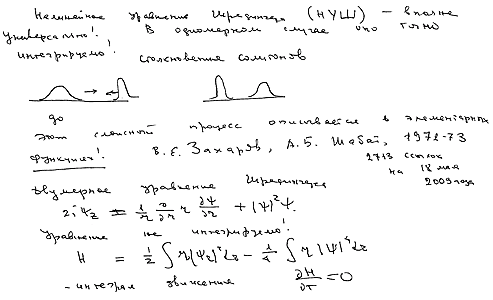 Нелинейное уравнение Шредингера (НУШ) – вполне
универсально! В одномерном случае оно точно
интегрируемо! столкновения солитонов
до
Этот сложный процесс описывается в элементарных
функциях! В.Е. Захаров, А.Б. Шабат, 1971-73
2713 ссылок
на 18 мая
2009 года
Двумерное уравнение Шредингера
2iΨ_z = 1/r ∂/∂r r ∂Ψ/∂r + |Ψ|²Ψ.
Уравнение не интегрируемо!
H = 1/2 ∫ r|Ψ_r|² dr – 1/4 ∫ r|Ψ|⁴ dr
- интеграл движения ∂H/∂τ = 0